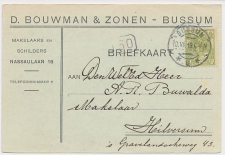 D. BOUWMAN & ZONEN - BUSSUM
MAKELAARS EN
SCHILDERS
NASSAULAAN 16
TELEFOONNUMMER
BRIEFKAART
Aan Den WelEd. Heer
Buwalda
Makelaar
Hilversum
's Gravelandscheweg 43